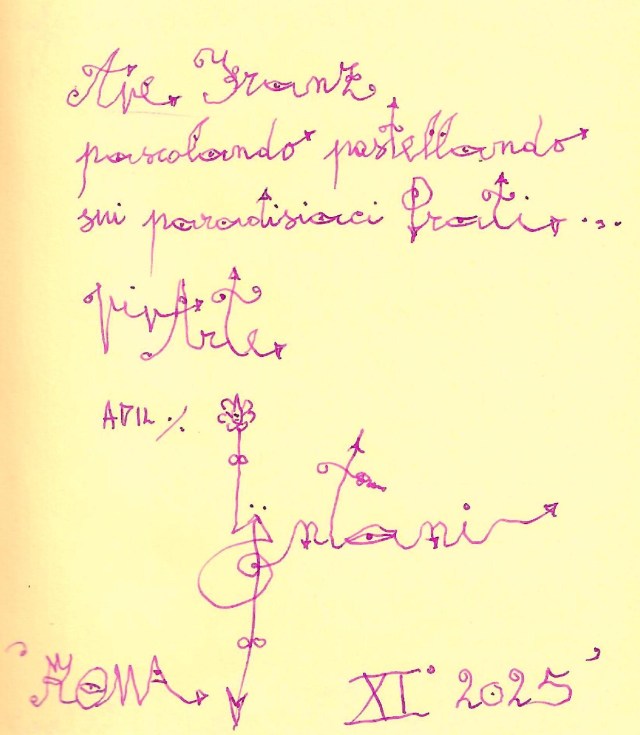 Ave Franz
pascolando pastellando
sui paradisiaci Prati...
vivArte
Intani
ROMA XI° 2025